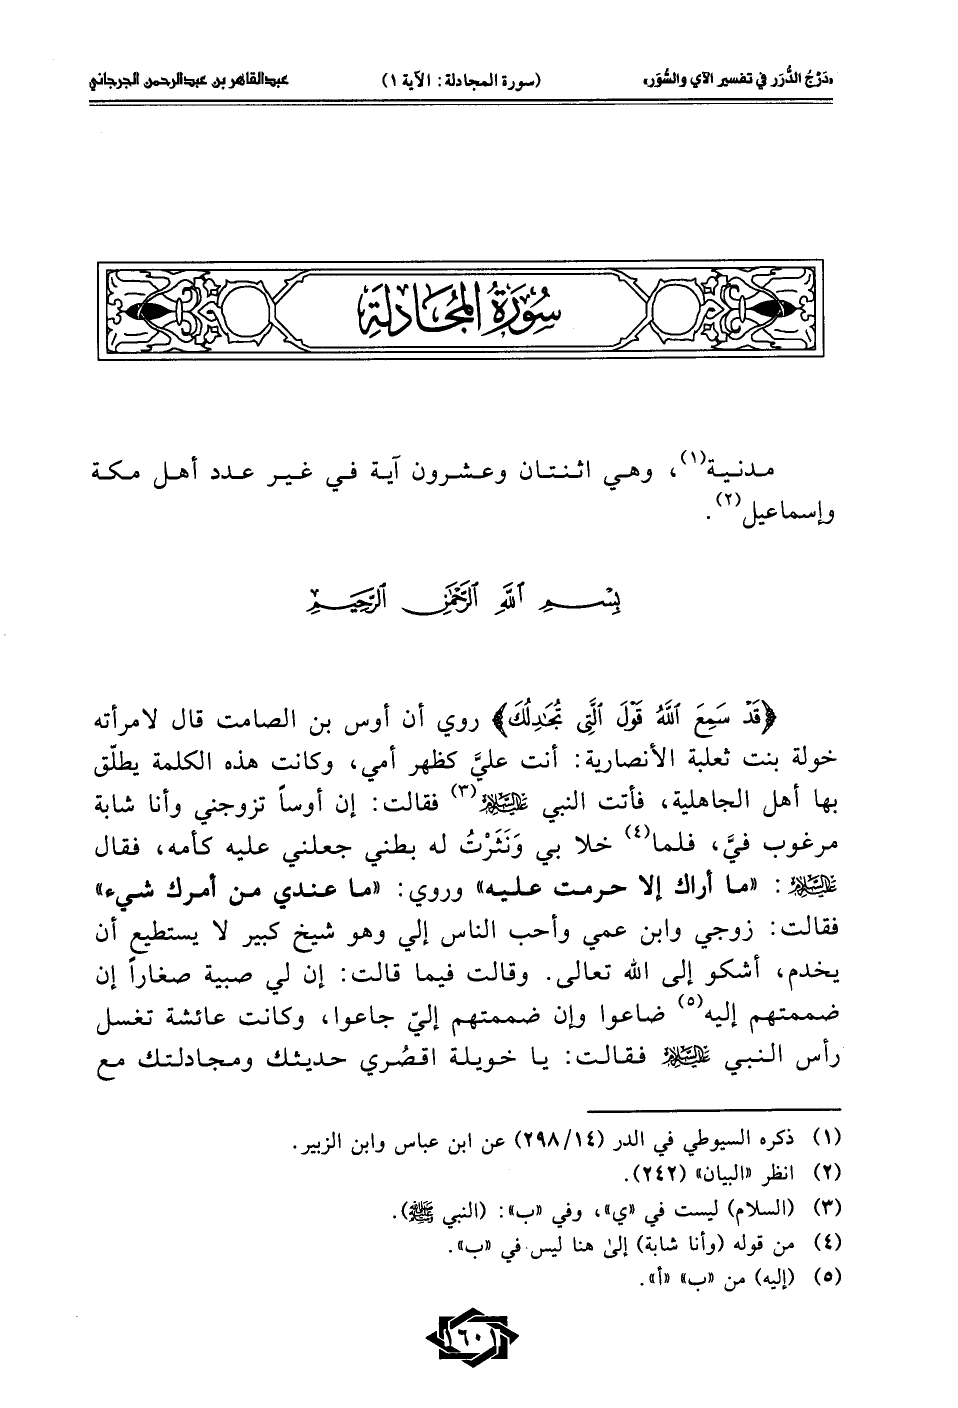 «دَرْجُ الدُّرَر في تفسير الآي والسُّوَر» (سورة المجادلة: الآية ١) عبدالقاهر بن عبدالرحمن الجرجاني
سُورَةُ المُجَادلة
مدنية(١)، وهي اثنتان وعشرون آية في غير عدد أهل مكة
وإسماعيل(٢).
بِسْمِ ٱللَّهِ ٱلرَّحْمَٰنِ ٱلرَّحِيمِ
﴿قَدْ سَمِعَ ٱللَّهُ قَوْلَ ٱلَّتِى تُجَٰدِلُكَ﴾ روي أن أوس بن الصامت قال لامرأته
خولة بنت ثعلبة الأنصارية: أنت عليَّ كظهر أمي، وكانت هذه الكلمة يطلّق
بها أهل الجاهلية، فأتت النبي عليه السلام(٣) فقالت: إن أوساً تزوجني وأنا شابة
مرغوب فيَّ، فلما(٤) خلا بي وَنَثَرْتُ له بطني جعلني عليه كأمه، فقال
عليه السلام: «ما أراك إلا حرمت عليه» وروي: «ما عندي من أمرك شيء»
فقالت: زوجي وابن عمي وأحب الناس إلي وهو شيخ كبير لا يستطيع أن
يخدم، أشكو إلى الله تعالى. وقالت فيما قالت: إن لي صبية صغاراً إن
ضممتهم إليه(٥) ضاعوا وإن ضممتهم إليّ جاعوا، وكانت عائشة تغسل
رأس النبي عليه السلام فقالت: يا خويلة اقصُري حديثك ومجادلتك مع
(١) ذكره السيوطي في الدر (٢٩٨/١٤) عن ابن عباس وابن الزبير.
(٢) انظر «البيان» (٢٤٢).
(٣) (السلام) ليست في «ي»، وفي «ب»: (النبي ﷺ).
(٤) من قوله (وأنا شابة) إلىٰ هنا ليس في «ب».
(٥) (إليه) من «ب» «أ».
١٦٠١